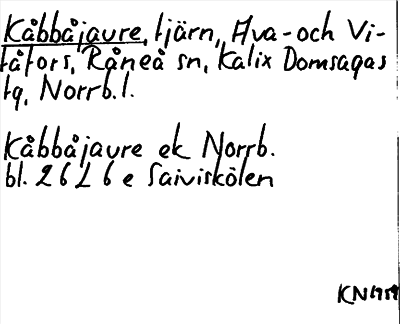 Kåbbåjaure, tjärn, Alva- och Vi-
tåfors, Råneå sn, Kalix Domsagas
tg, Norrb. l.
Kåbbåjaure ek Norrb.
bl. 26 L 6 e Saiviskölen
KN 1959